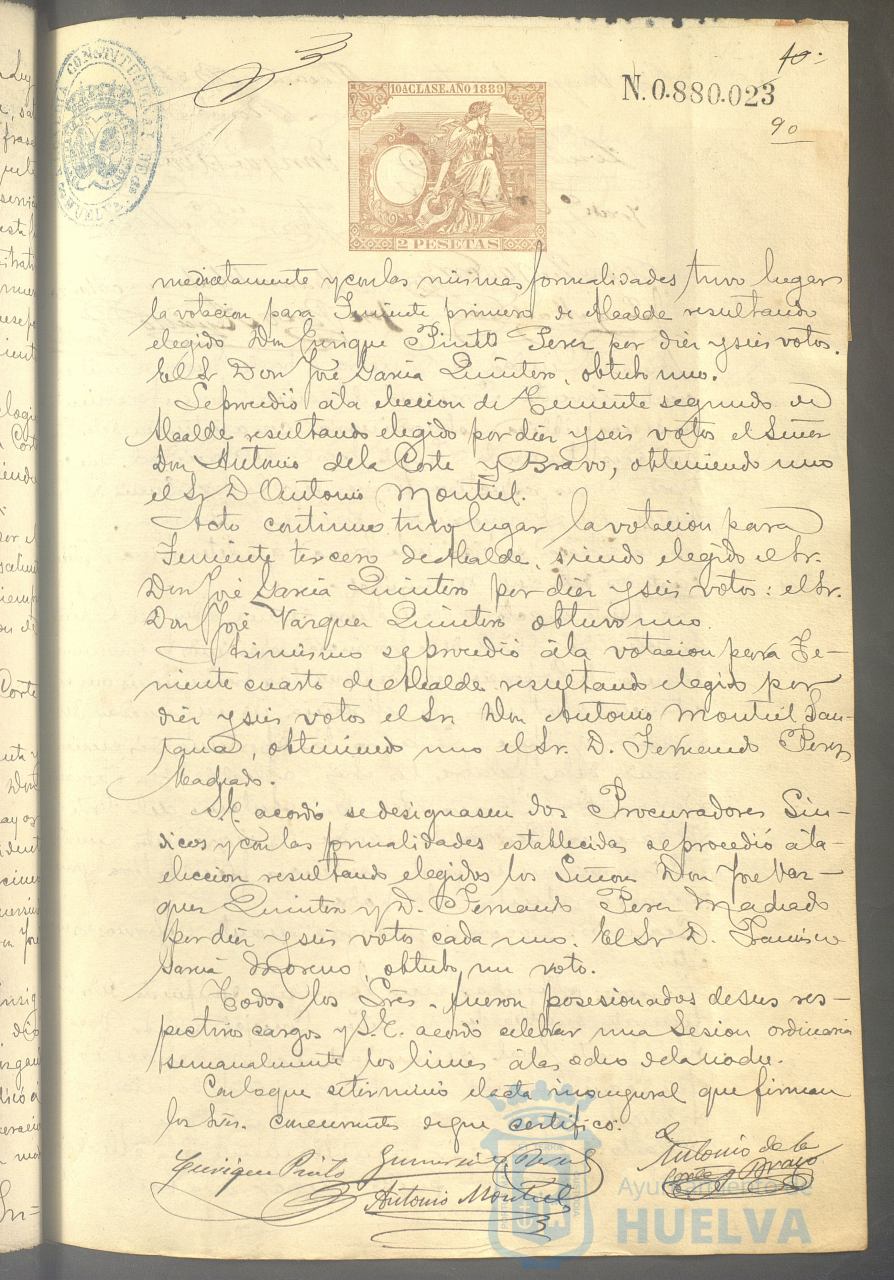 10.
10ª CLASE. AÑO 1889
N.0.880.023
90
2 PESETAS
mediatamente y con las mismas formalidades tuvo lugar
la votacion para Teniente primero de Alcalde resultando
elegido Don Enrique Pintto Perez por diez y seis votos.
El Sr Don José Garcia Quintero, obtubo uno.
Se procedió á la eleccion de Teniente segundo de
Alcalde resultando elegido por diez y seis votos el Señor
Don Antonio de la Corte y Bravo, obteniendo uno
el Sr D Antonio Montiel.
Acto continuo tuvo lugar la votacion para
Teniente tercero de Alcalde, siendo elegido el Sr.
Don José Garcia Quintero por diez y seis votos: el Sr.
Don José Vazquez Quintero obtuvo uno.
Asimismo se procedió á la votacion para Te-
niente cuarto de Alcalde resultando elegido por
diez y seis votos el Sr. Don Antonio Montiel San-
tana, obteniendo uno el Sr. D. Fernando Perez
Machado.
S.E. acordó se designasen dos Procuradores Sin-
dicos y con las formalidades establecidas se procedió á la
eleccion resultando elegidos los Señores Don José Vaz-
quez Quintero y D. Fernando Perez Machado
por diez y seis votos cada uno. El Sr D. Francisco
Garcia Moreno, obtubo un voto.
Todos los Sres. fueron posesionados de sus res-
pectivos cargos y S.E. acordó celebrar una Sesion ordinaria
semanalmente los lunes á las ocho de la noche.
Con lo que se terminó el acta inaugural que firman
los Sres. concurrentes de que certifico:
Enrique Pintto
Antonio de la
Corte y Bravo
Antonio Montiel
Ayuntamiento de
HUELVA